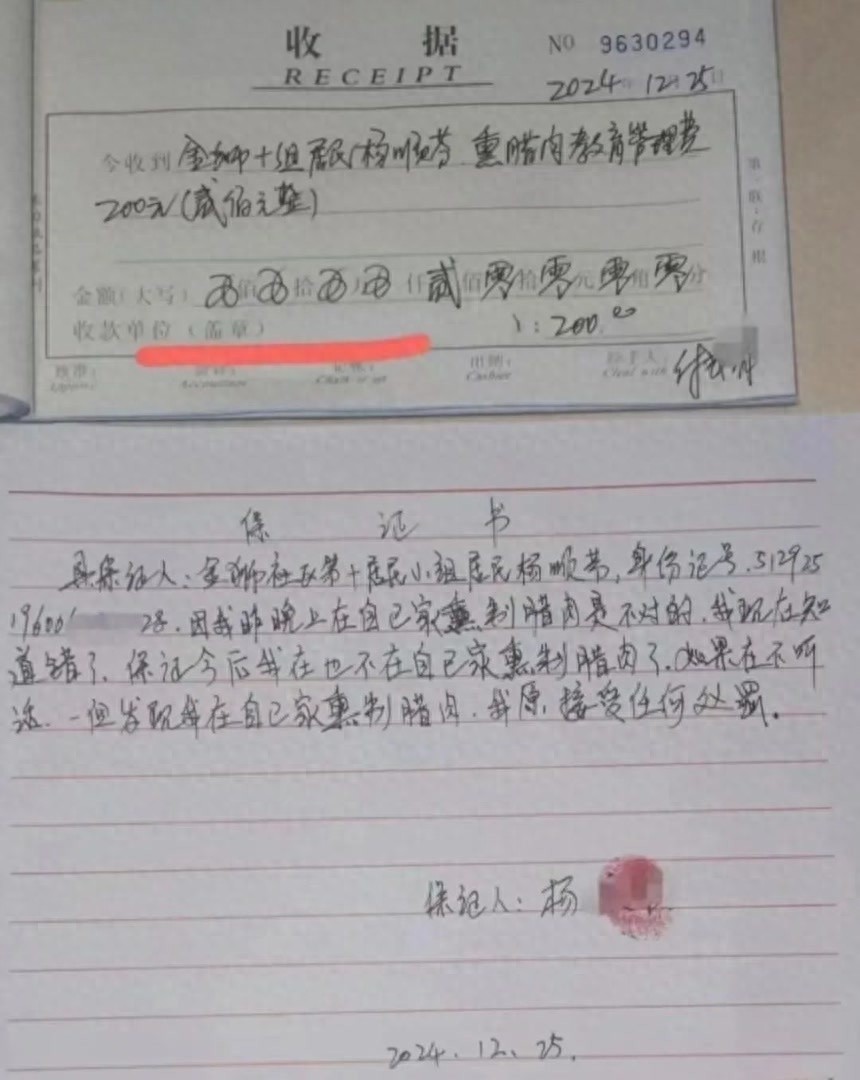 收 据
RECEIPT
NO 9630294
2024年12月25日
今收到 金狮十组居民杨顺芬.熏腊肉教育管理费
200元(贰佰元整)
金额(大写) 佰 拾 万 仟 贰佰零拾零元零角零分
收款单位(盖章) ):200.00
核准: 会计: 记账: 出纳: 经手人:
Accountant Cashier
第一联:存根
保 证 书
具保证人:金狮社区第十居民小组居民杨顺芬,身份证号.512925
19600 28.因我昨晚上在自己家熏制腊肉是不对的.我现在知
道错了.保证今后我在也不在自己家熏制腊肉了.如果在不听
话.一但发现我在自己家熏制腊肉.我原接受任何处罚。
保证人:杨
2024.12.25.